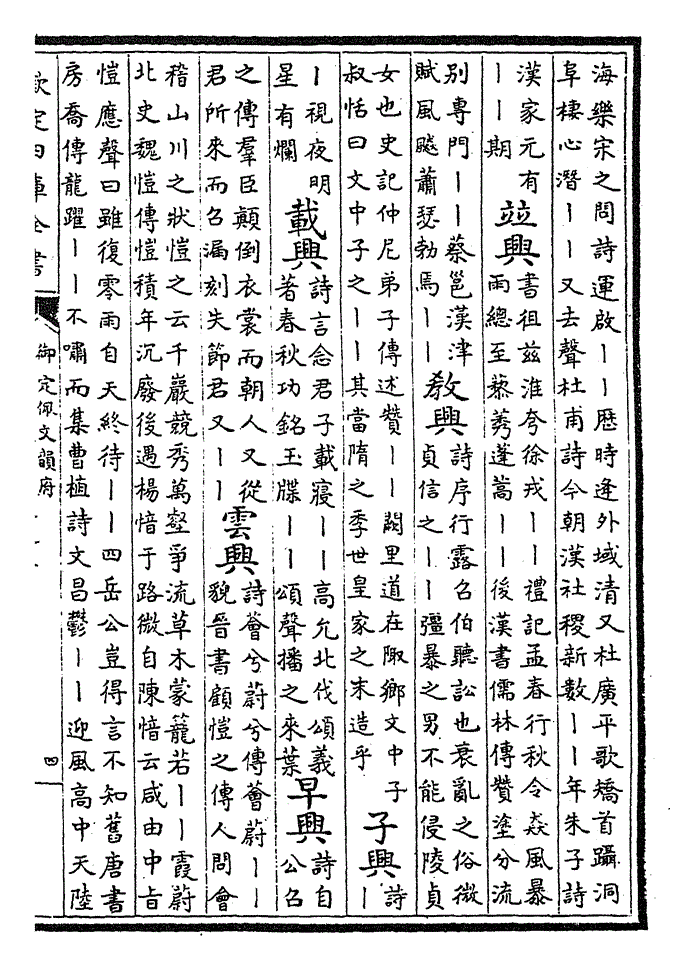 海樂宋之問詩運啟丨丨歷時逢外域清又杜廣平歌矯首躡洞
阜棲心潛丨丨又去聲杜甫詩今朝漢社稷新數丨丨年朱子詩
漢家元有
丨丨期
竝興
書徂茲淮夷徐戎丨丨禮記孟春行秋令猋風暴
雨總至藜莠蓬蒿丨丨後漢書儒林傳贊塗分流
別專門丨丨蔡邕漢津
賦風飋蕭瑟勃焉丨丨
敎興
詩序行露召伯聽訟也衰亂之俗微
貞信之丨丨彊暴之男不能侵陵貞
女也史記仲尼弟子傳述贊丨丨闕里道在陬鄉文中子
叔恬曰文中子之丨丨其當隋之季世皇家之末造乎
子興
詩
丨
丨視夜明
星有爛
載興
詩言念君子載寢丨丨高允北伐頌義
著春秋功銘玉牒丨丨頌聲播之來葉
早興
詩自
公召
之傳羣臣顛倒衣裳而朝人又從
君所來而召漏刻失節君又丨丨
雲興
詩薈兮蔚兮傳薈蔚丨丨
貌晉書顧愷之傳人問會
稽山川之狀愷之云千巖競秀萬壑爭流草木蒙籠若丨丨霞蔚
北史魏愷傳愷積年沉廢後遇楊愔于路微自陳愔云咸由中旨
愷應聲曰雖復零雨自天終待丨丨四岳公豈得言不知舊唐書
房喬傳龍躍丨丨不嘯而集曹植詩文昌鬱丨丨迎風高中天陸
欽定四庫全書
御定佩文韻府
四